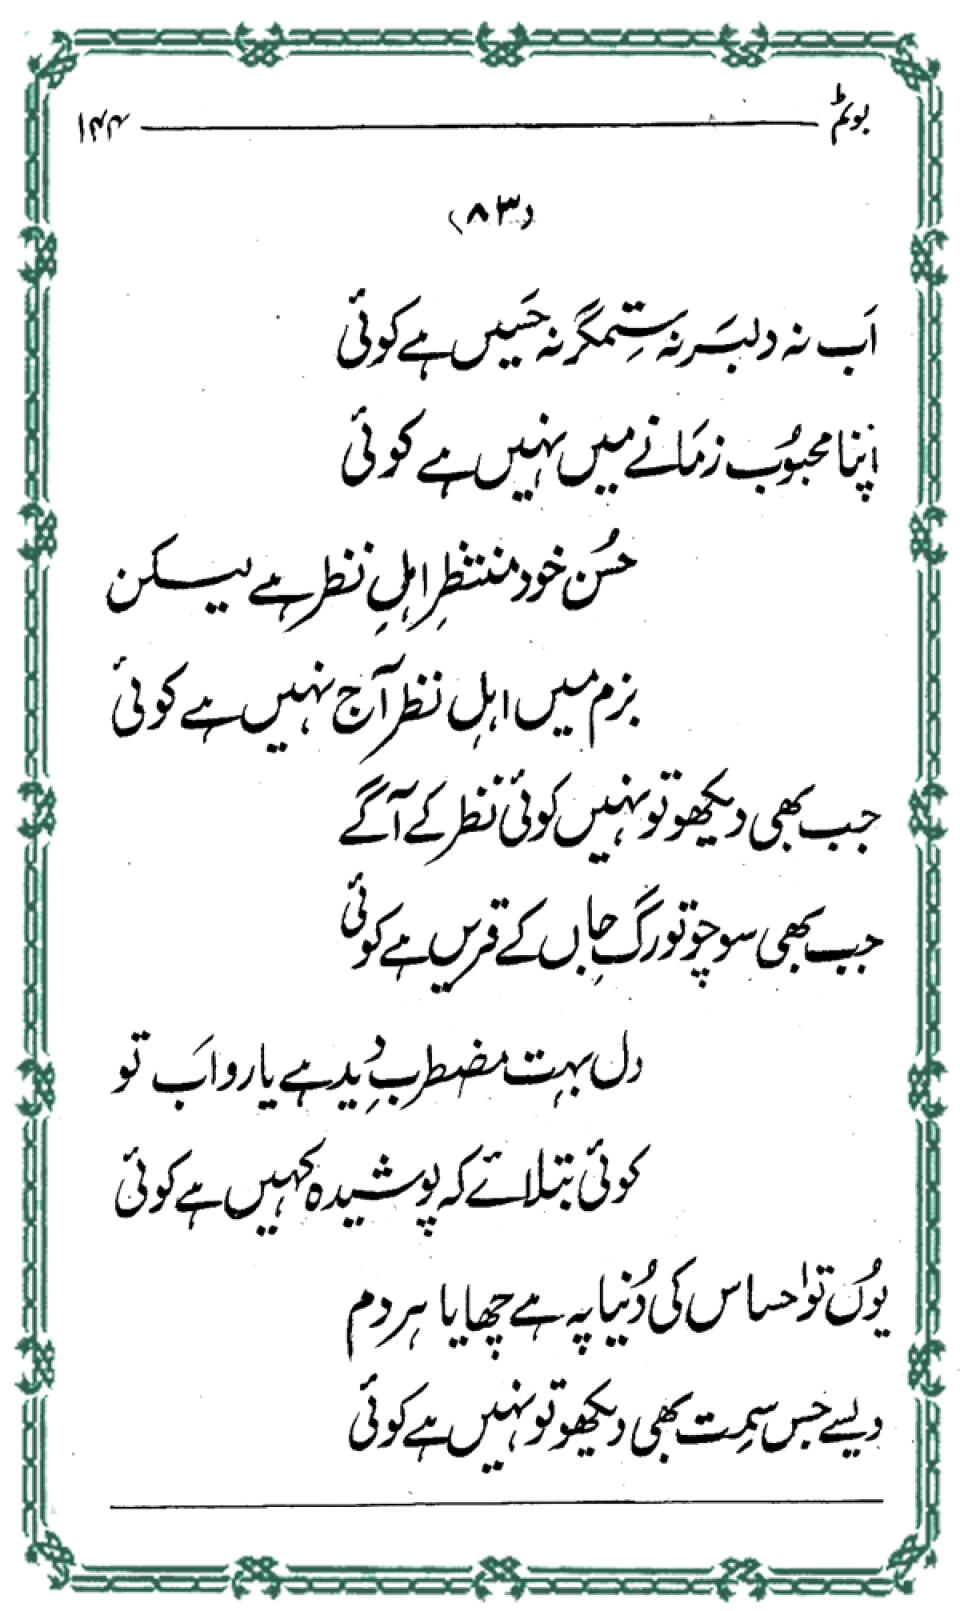 بوٹم ۱۴۴
(۸۳)
اَب نہ دلبَر نہ ستِمگر نہ حَسیں ہے کوئی
اپنا محبوُب زمَانے میں نہیں ہے کوئی
حسُن خود منتظرِ اہلِ نظر ہے لیکن
بزم میں اہلِ نظر آج نہیں ہے کوئی
جب بھی دیکھو تو نہیں کوئی نظر کے آگے
جب بھی سوچو تو رگِ جاں کے قریں ہے کوئی
دل بہت مضطربِ دید ہے یارو اَب تو
کوئی بتلائے کہ پوشیدہ کہیں ہے کوئی
یوُں تو احساس کی دُنیا پہ ہے چھایا ہر دم
ویسے جس سِمت بھی دیکھو تو نہیں ہے کوئی